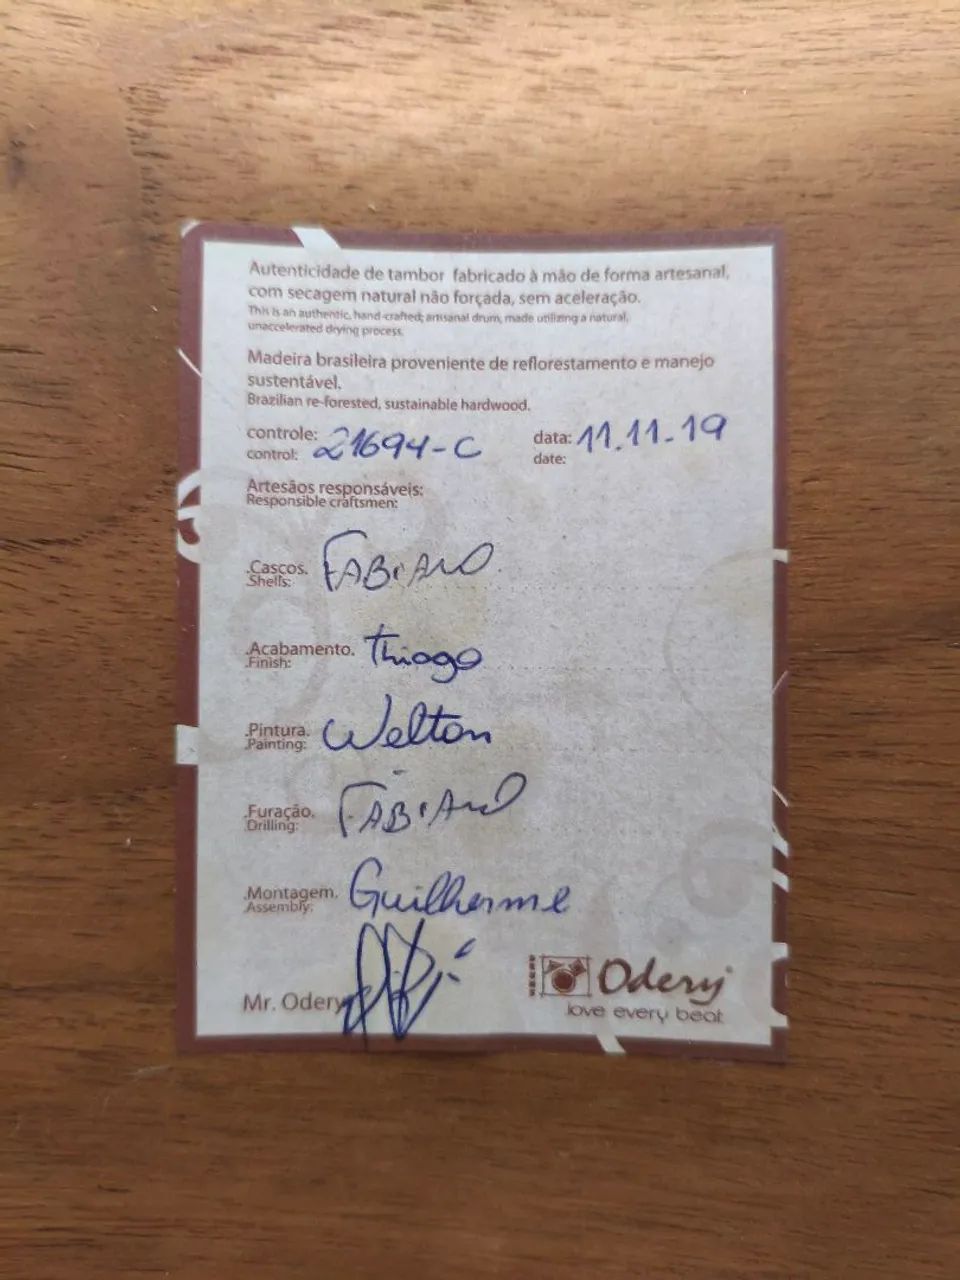 Autenticidade de tambor fabricado à mão de forma artesanal,
com secagem natural não forçada, sem aceleração.
This is an authentic, hand-crafted; artisanal drum, made utilizing a natural,
unaccelerated drying process.
Madeira brasileira proveniente de reflorestamento e manejo
sustentável.
Brazilian re-forested, sustainable hardwood.
controle: 21694-C data: 11.11.19
control: date:
Artesãos responsáveis:
Responsible craftsmen:
.Cascos. FABiANO
.Shells:
.Acabamento. Thiago
.Finish:
.Pintura. Welton
.Painting:
.Furação. FABiANO
.Drilling:
.Montagem. Guilherme
.Assembly:
Mr. Odery
Odery
love every beat